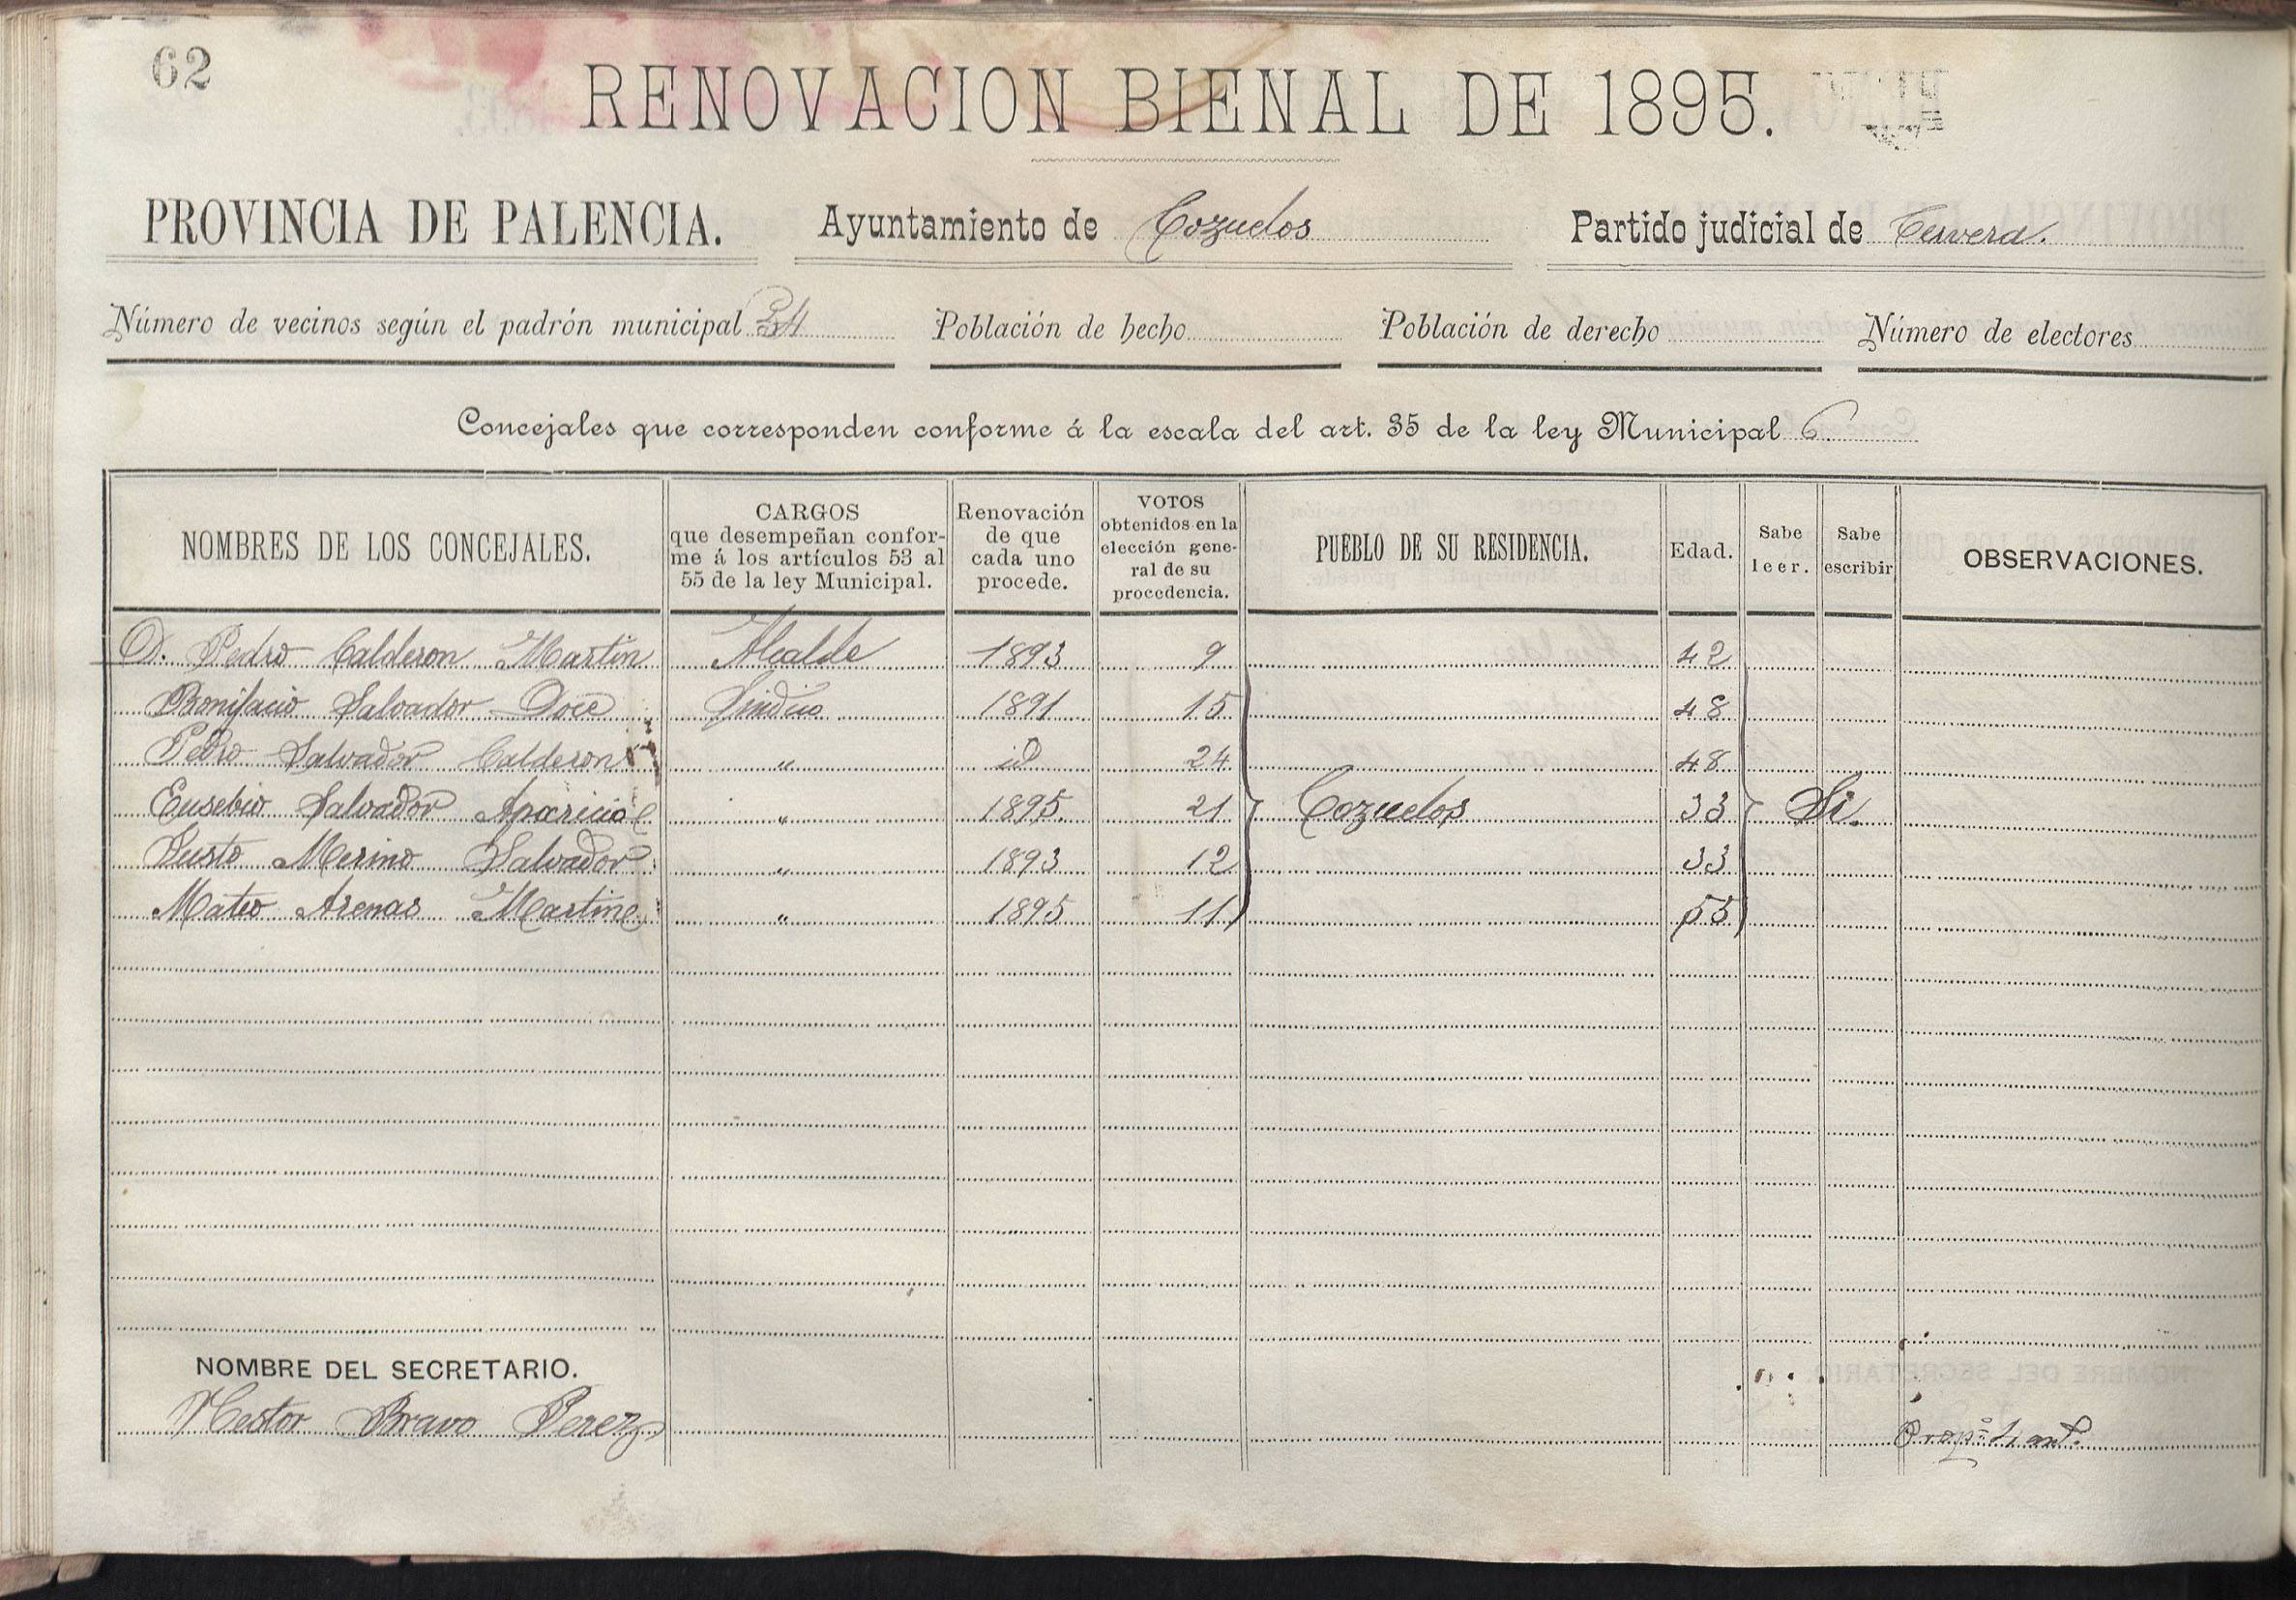 62
RENOVACION BIENAL DE 1895.
PROVINCIA DE PALENCIA. Ayuntamiento de Cozuelos Partido judicial de Cervera.
Número de vecinos según el padrón municipal 34 Población de hecho Población de derecho Número de electores
Concejales que corresponden conforme á la escala del art. 35 de la ley Municipal 6.
NOMBRES DE LOS CONCEJALES.
CARGOS
que desempeñan confor-
me á los artículos 53 al
55 de la ley Municipal.
Renovación
de que
cada uno
procede.
VOTOS
obtenidos en la
elección gene-
ral de su
procedencia.
PUEBLO DE SU RESIDENCIA.
Edad.
Sabe
leer.
Sabe
escribir
OBSERVACIONES.
D. Pedro Calderon Martin Alcalde 1893 9 42
Bonifacio Salvador Doce Sindico 1891 15 48
Pedro Salvador Calderon " id 24 48
Eusebio Salvador Aparicio " 1895. 21 Cozuelos 33 Si.
Justo Merino Salvador " 1893 12 33
Mateo Arenas Martine " 1895 11 55
NOMBRE DEL SECRETARIO.
Nestor Bravo Perez